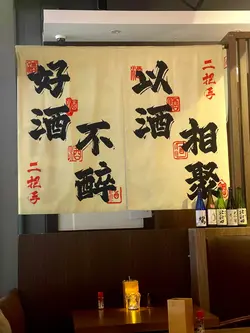 以酒
相聚
二把手
好酒
不醉
二把手